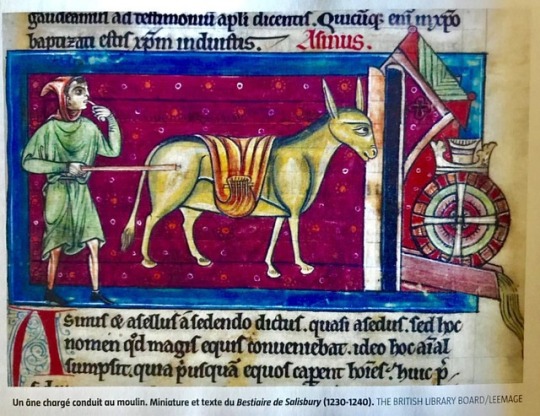 gaudeamus ad testimoniū apli dicentis. Quicūq; enī in xp̄o
baptizati estis xp̄m induistis. Asinus.
Asinus & asellus a sedendo dictus. quasi asedus. sed hoc
nomen qd̄ magis equis conueniebat. ideo hoc aīal
sumpsit. quia p̄usquā equos caperent hoīes. huic p̄
Un âne chargé conduit au moulin. Miniature et texte du Bestiaire de Salisbury (1230-1240). THE BRITISH LIBRARY BOARD/LEEMAGE